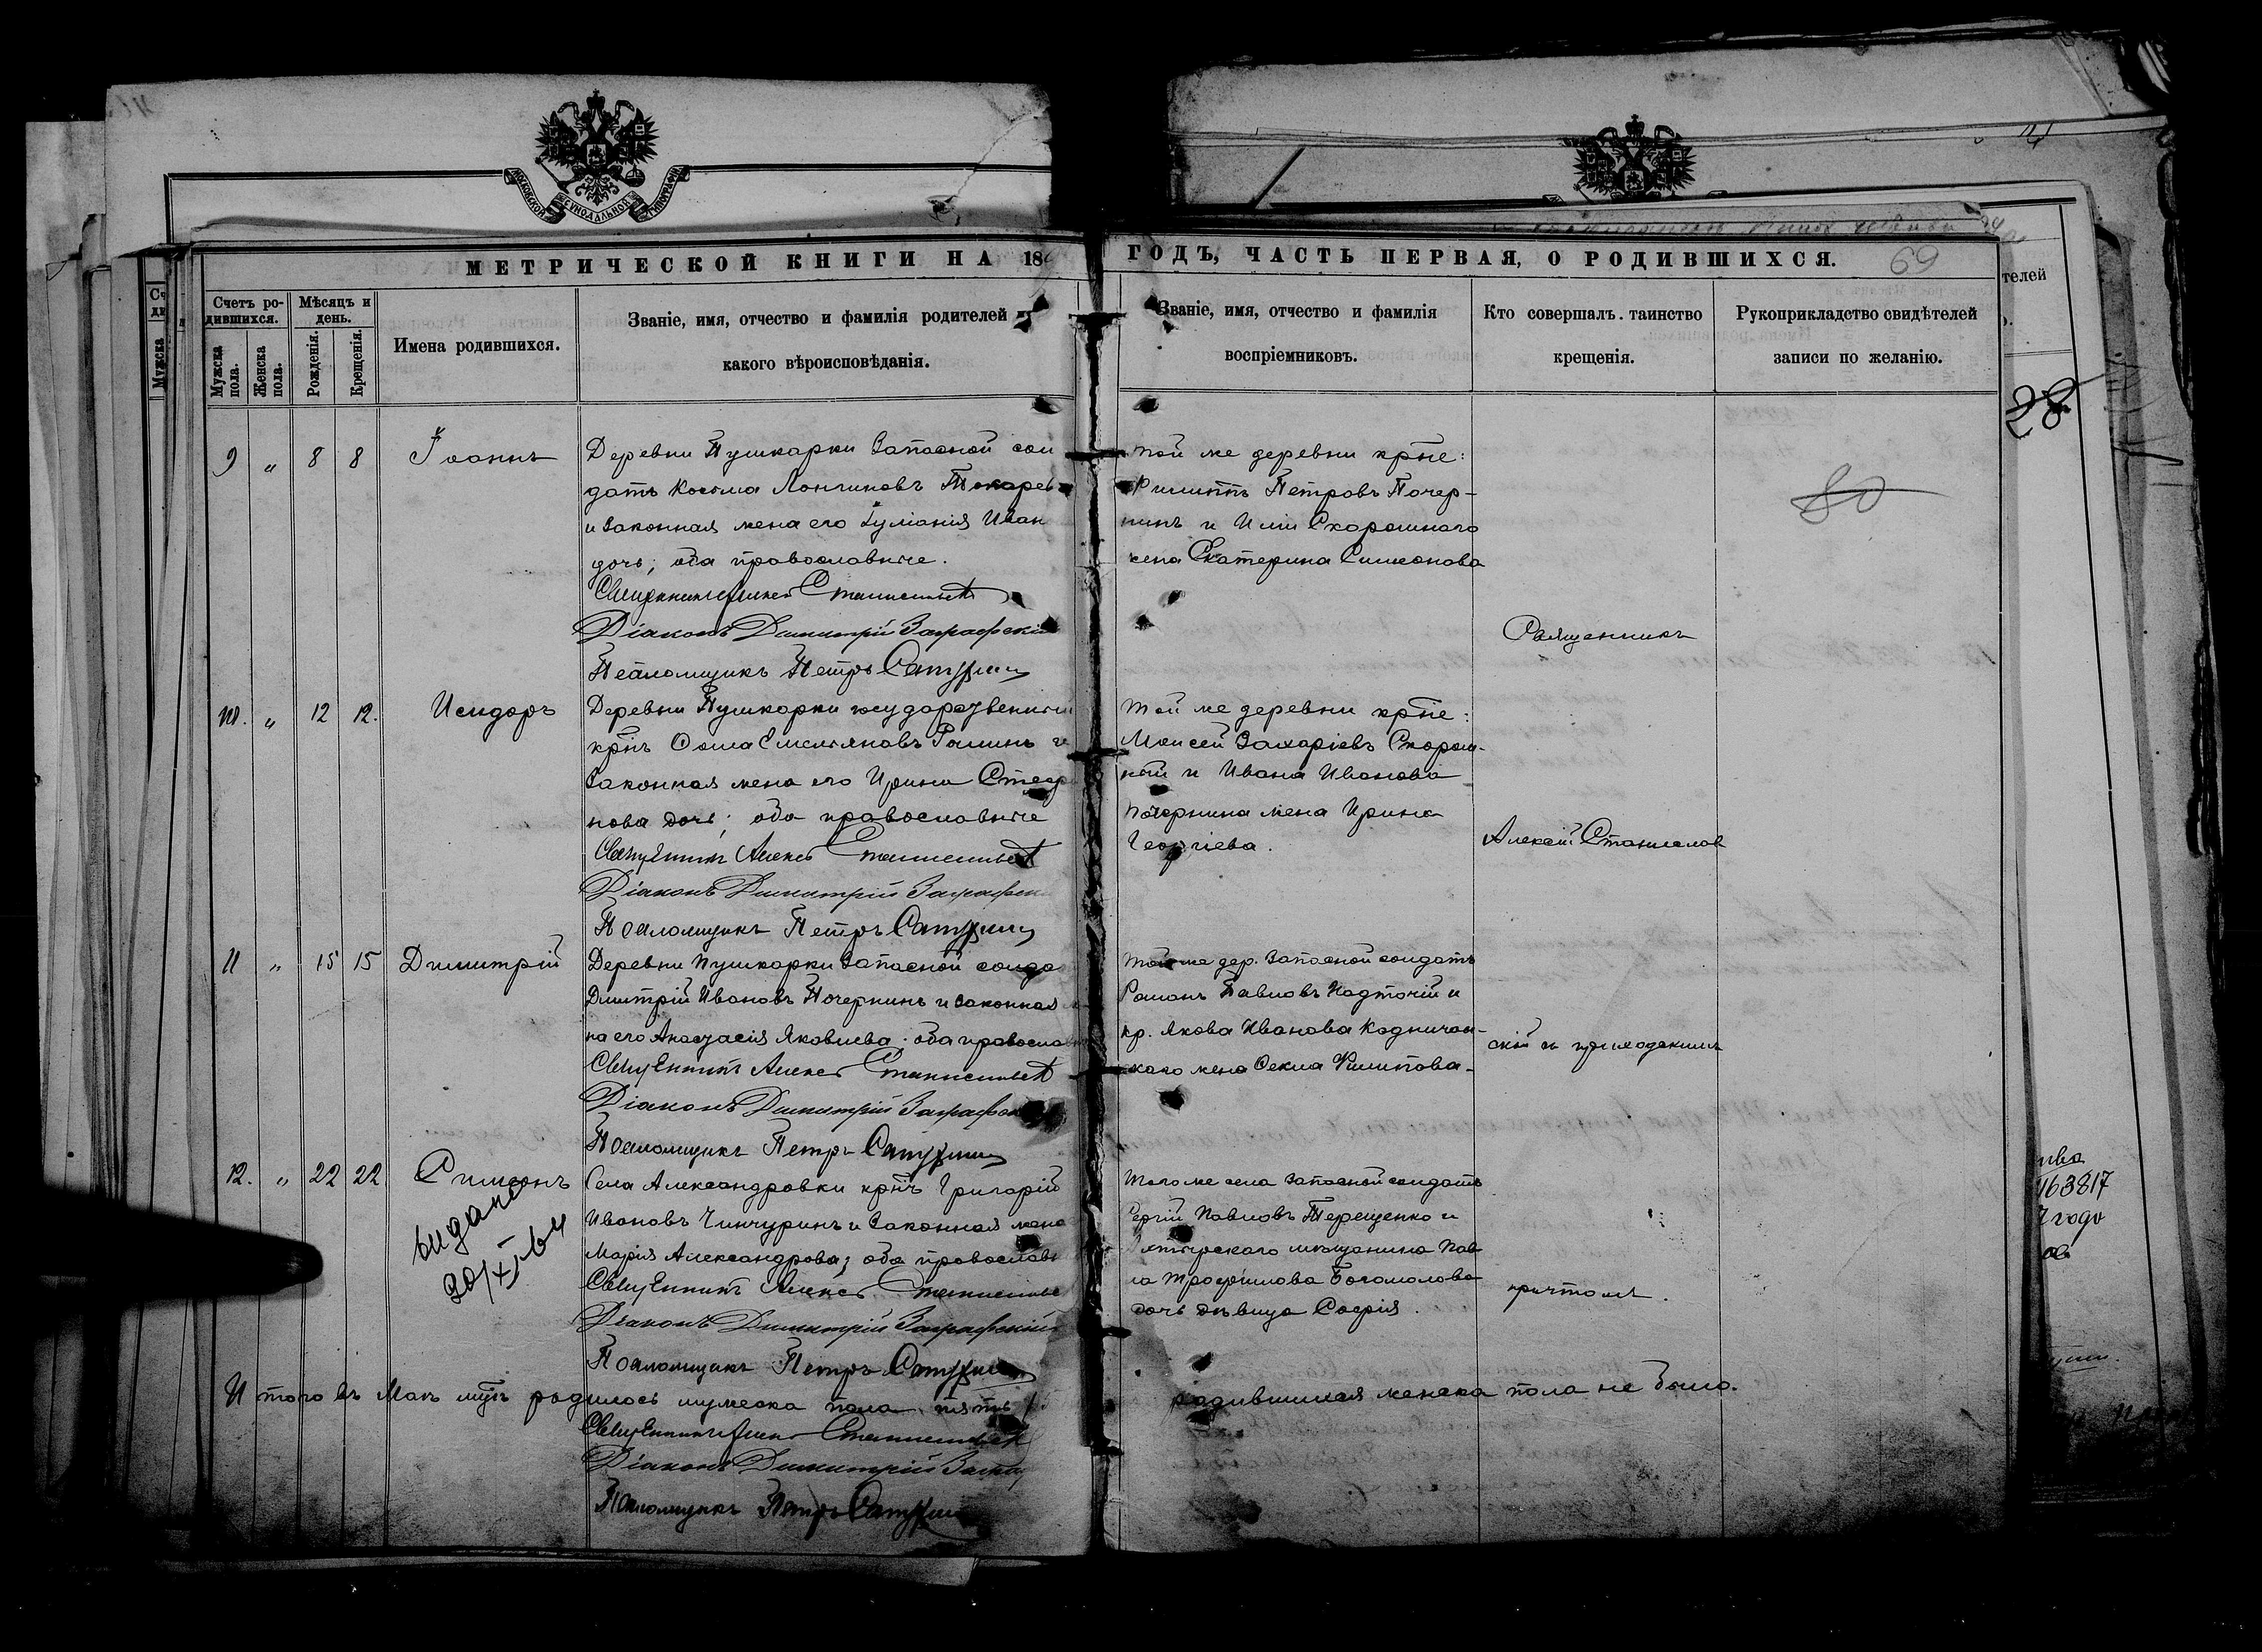 МОСКОВСКОЙ СѴНОДАЛЬНОЙ ТИПОГРАФІИ
МЕТРИЧЕСКОЙ КНИГИ НА 18
ГОДЪ, ЧАСТЬ ПЕРВАЯ, О РОДИВШИХСЯ.
69
Счетъ родившихся.
Мужска пола.
Женска пола.
Мѣсяцъ и день.
Рожденія.
Крещенія.
Имена родившихся.
Званіе, имя, отчество и фамилія родителей и
какого вѣроисповѣданія.
Званіе, имя, отчество и фамилія
воспріемниковъ.
Кто совершалъ таинство
крещенія.
Рукоприкладство свидѣтелей
записи по желанію.
телей
28
80
9 " 8 8 Іоаннъ
Деревни Пушкарки Запасной сол
датъ Косьма Лонгиновъ Токарев
и законная жена его Іуліанія Иван
дочь; оба православные.
Священникъ Алексѣй
Діаконъ Димитрій
Псаломщикъ Петръ
той же деревни крѣне:
Филиппъ Петровъ Почер-
нинъ и Иліи Скорошнаго
жена Екатерина Симеонова
Священникъ
10. " 12 12. Исидоръ
Деревни Пушкарки государственный
крнъ Ѳома Емельяновъ и
Законная жена его Ирина Стефа
нова дочь; оба православные
Священникъ Алексѣй
Діаконъ Димитрій
Псаломщикъ Петръ
Той же деревни крѣне:
Моисей Захаріевъ Скорош-
ный и Ивана Иванова
Почернина жена Ирина
Георгіева.
Алексій
11 " 15 15 Димитрій
Деревни Пушкарки Запасной солда
Димитрій Ивановъ Почернинъ и законная
на его Анастасія Яковлева; оба православн
Священникъ Алексѣй
Діаконъ Димитрій
Псаломщикъ Петръ
Той же дер. Запасной солдатъ
Романъ Павловъ Надточій и
кр. Якова Иванова
каго жена Ѳекла Филипова
скій съ приходскимъ
12. " 22 22 Симеонъ
видано
20/X-64
Села Александровки крнъ Григорій
Ивановъ Чинчуринъ и Законная жена
Марія Александрова; оба православн
Священникъ Алексѣй
Діаконъ Димитрій
Псаломщикъ Петръ
Того же села Запасной солдатъ
Сергій Павловъ Терещенко и
мѣщанина Пав
ла Трофимова Богомолова
дочь дѣвица Софія.
причтомъ.
Итого въ Маѣ мцѣ родилось мужеска пола пять
родившихся женска пола не было.
Священникъ
Діаконъ Димитрій
Псаломщикъ Петръ
ива
463817
7 году